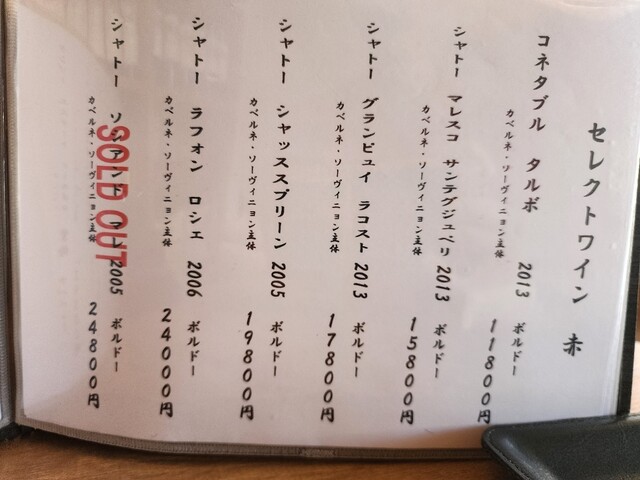 セレクトワイン 赤
コネタブル タルボ 2013 ボルドー
カベルネ・ソーヴィニョン主体 11800円
シャトー マレスコ サンテグジュペリ 2013 ボルドー
カベルネ・ソーヴィニョン主体 15800円
シャトー グランピュイ ラコスト 2013 ボルドー
カベルネ・ソーヴィニョン主体 17800円
シャトー シャッススプリーン 2005 ボルドー
カベルネ・ソーヴィニョン主体 19800円
シャトー ラフォン ロシェ 2006 ボルドー
カベルネ・ソーヴィニョン主体 24000円
シャトー ソシアンド マレ 2005 ボルドー
カベルネ・ソーヴィニョン主体 24800円
SOLD OUT